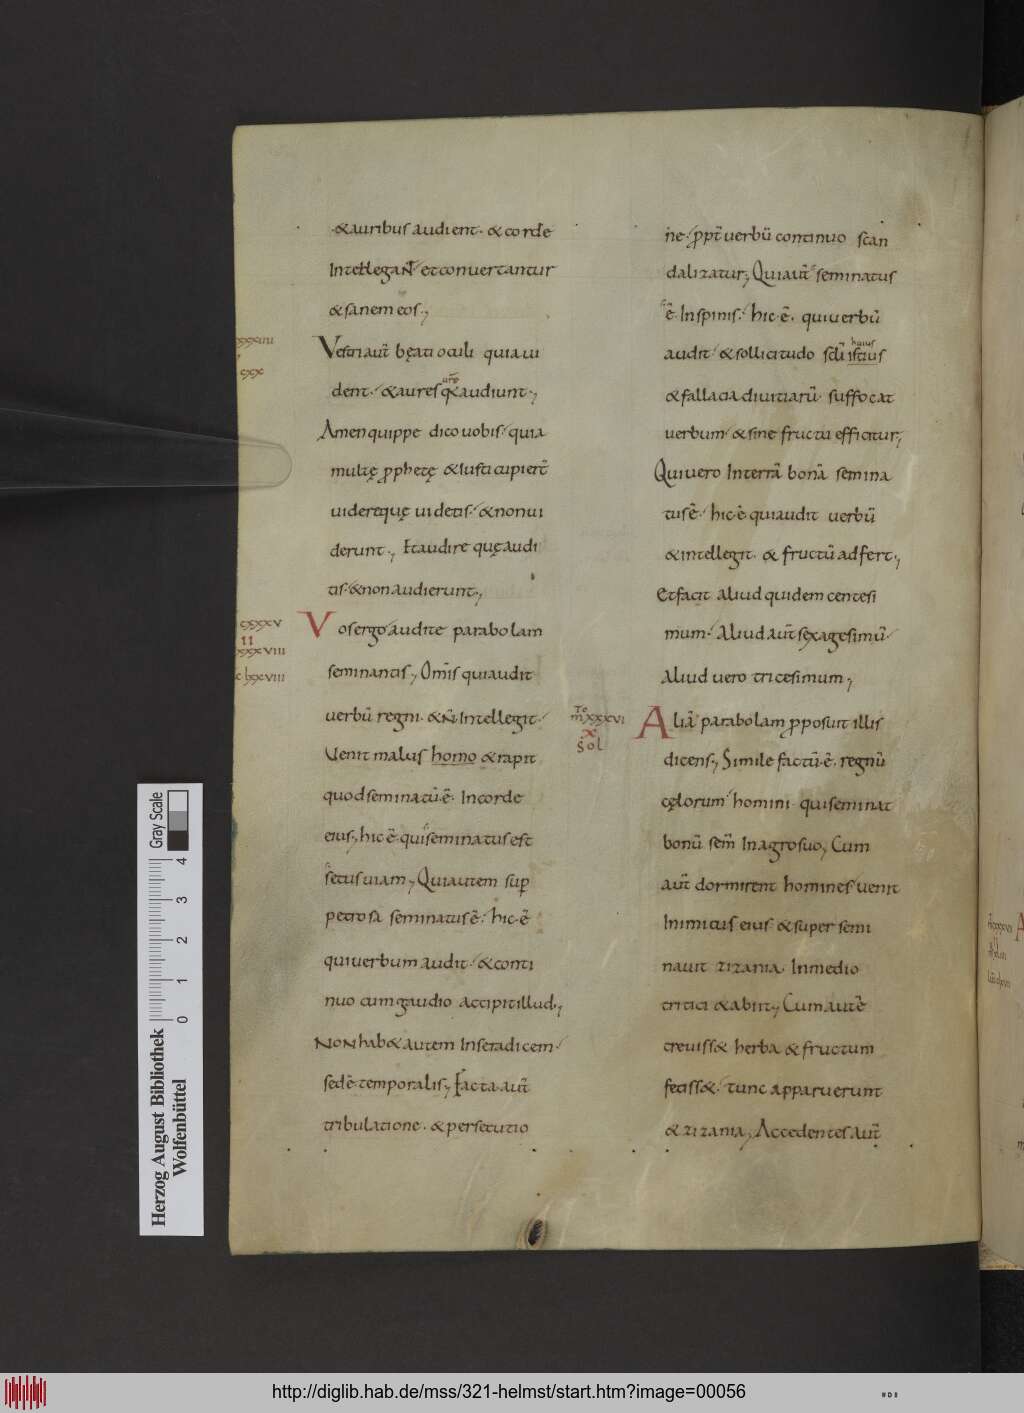 & auribus audient · & corde
Intellegant et conuertantur
& sanem eos ·,
Vestri aut̄ bęati oculi quia ui
dent · & aures q̣& audiunt ·,
urē
Amen quippe dico uobis · quia
multę ꝓphetę & Iusti cupiert̄
uidere quę uidetis · & non ui
derunt ·, Et audire quę audi
tis · & non audierunt ·,
Vos ergo audite parabolam
seminantis ·, Om̄is qui audit
verbū regni · & n̄ Intellegit ·
Venit malus homo & rapit
quod seminatū · ē · In corde
eius ·, hic · ē · qui seminatus est
secus uiam ·, Qui autem suꝑ
petrosa seminatus ē · hic · ē
qui uerbum audit · & conti
nuo cum gaudio accipit illud ·,
NON hab& autem In se radicem ·
sed ē · temporalis ·, Facta aut̄
tribulatione · & persecutio
cxxxv
II
xxxviii
c lxxviii
ne · ꝓpt̄ uerbū continuo scan
dalizatur ·, Qui aut̄ seminatus
ē · In spinis · hic · ē · qui uerbū
audit · & sollicitudo scl̄i istius
huius
& fallacia diuitiarū · suffocat
verbum · & sine fructu efficitur ·,
Qui uero In terrā bonā semina
tus ē · hic · ē qui audit uerbū
& intellegit · & fructū adfert ·,
Et facit aliud quidem centesi
mum · Aliud aut̄ sexagesimū ·
Aliud uero tricesimum ·,
Aliā parabolam ꝓposuit illis
dicens ·, Simile factū · ē · regnū
cęlorum homini · qui seminat
bonū sem̄ In agro suo ·, Cum
aut̄ dormirent homines uenit
Inimicus eius · & super semi
nauit zizania · In medio
tritici & abiit ·, Cum autē
creuiss& herba & fructum
feciss& · tunc apparuerunt
& zizania ·, Accedentes aut̄
TO
mxxxvi
x
sol
Gray Scale
4
3
2
1
0
Herzog August Bibliothek
Wolfenbüttel
http://diglib.hab.de/mss/321-helmst/start.htm?image=00056